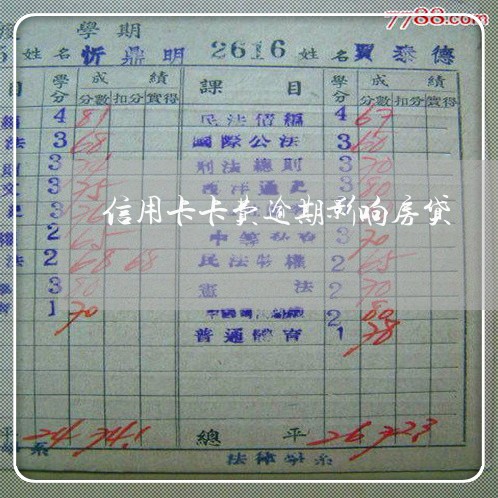 7788.com
學期
姓名 忻鼎明 2616 姓名 賈泰德
目 學分 成績 課目 學分 成績
分數 扣分 實得 分數 扣分 實得
4 81 民法債編 4 67
法 3 68 國際公法 3 60
3 刑法總則 3 70
3 75 西洋通史 3 80
信用卡卡费逾期影响房贷
2 65 3 70
法 2 68 68 民法物權 2 65
3 80 憲法 2 70
1 70 2 80
普通體育 1 78
平 24 74.1 總平 26 72.3
系 法律學系